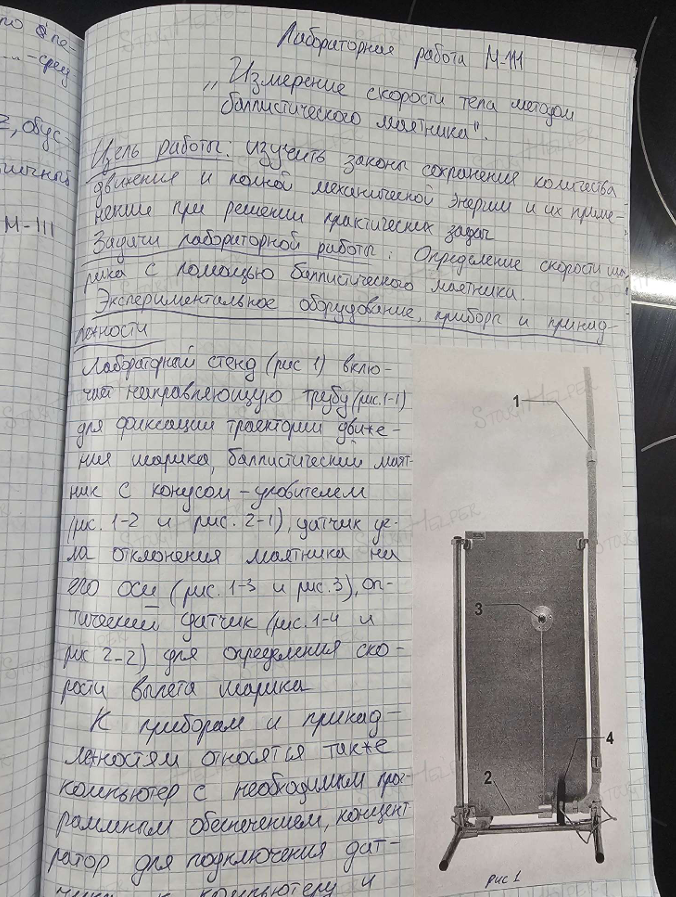 Лабораторная работа М-111
„Измерение скорости тела методом
баллистического маятника".
Цель работы: изучить законы сохранения количества
движения и полной механической энергии и их приме-
нение при решении практических задач
Задачи лабораторной работы: Определение скорости ша-
рика с помощью баллистического маятника.
Экспериментальное оборудование, приборы и принад-
лежности
Лабораторный стенд (рис 1) вклю-
чает направляющую трубу (рис.1-1)
для фиксации траектории движе-
ния шарика, баллистический маят-
ник с конусом-уловителем
(рис. 1-2 и рис. 2-1), датчик уг-
ла отклонения маятника на
его оси (рис. 1-3 и рис.3), оп-
тический датчик (рис. 1-4 и
рис 2-2) для определения ско-
рости вылета шарика
К приборам и принад-
лежностям относятся также
компьютер с необходимым прог-
раммным обеспечением, концент
ратор для подключения дат-
чиков к компьютеру и
1
3
4
2
рис 1
по
-сред
обус-
М-111
STUDY HELPER